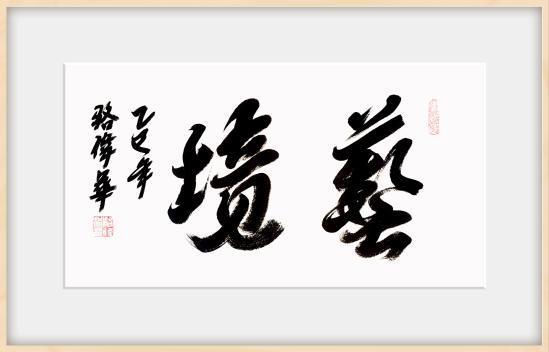 藝境
乙巳年
駱偉華